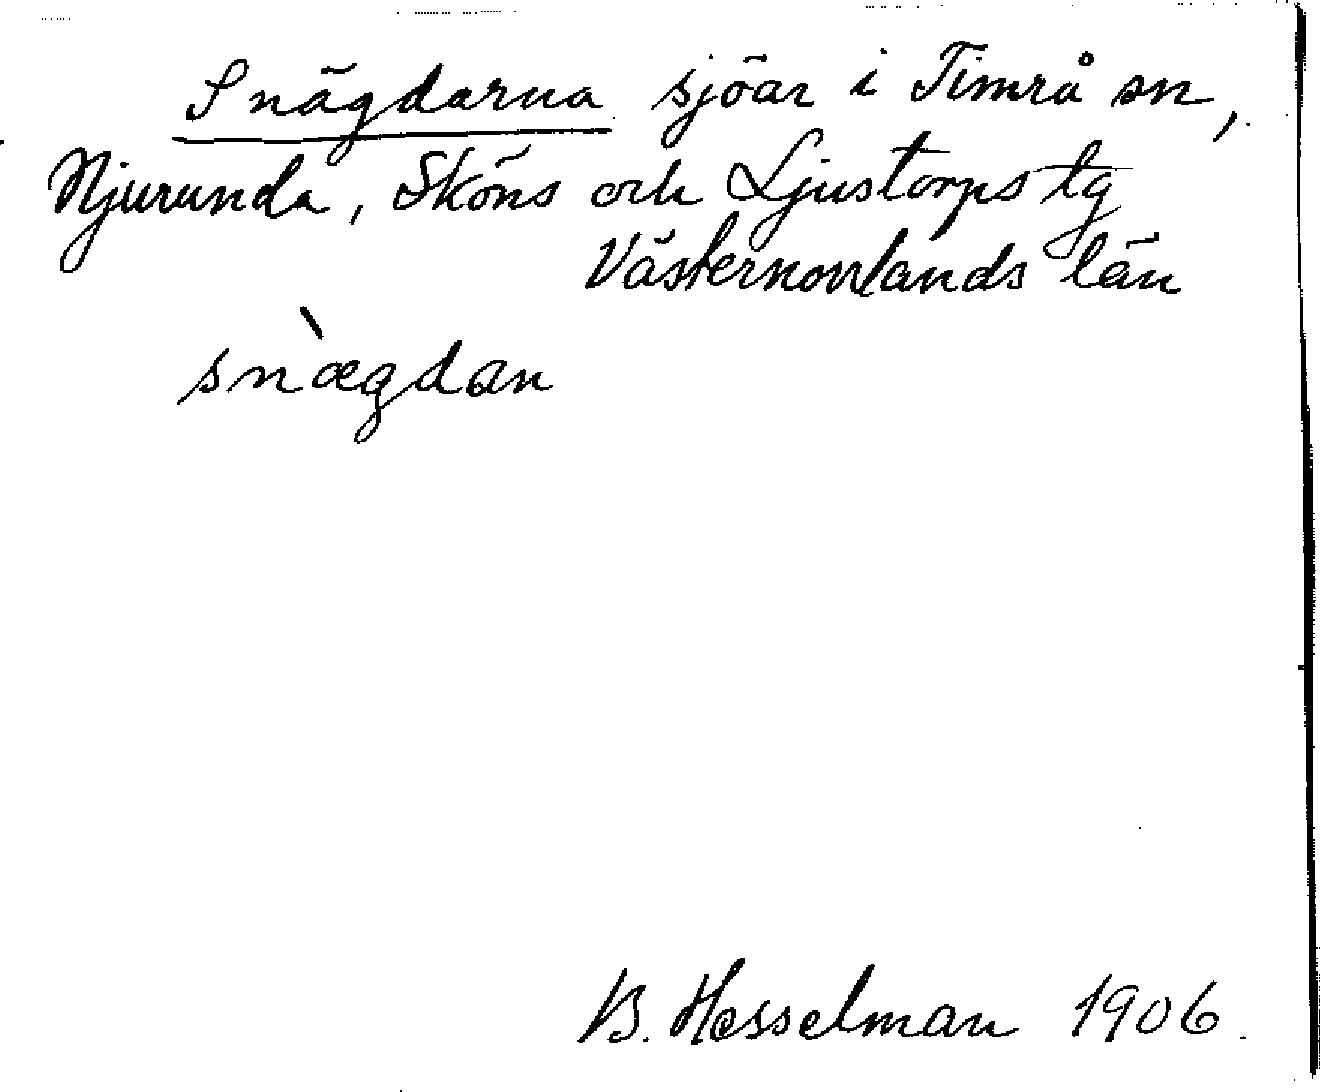 Snägdarna sjöar i Timrå sn,
Njurunda, Sköns och Ljustorps tg
Västernorrlands län
snàgdan
B. Hesselman 1906.